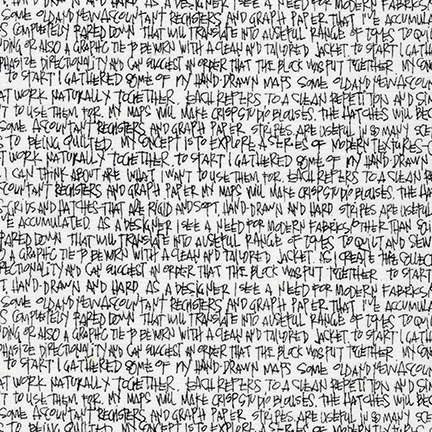 NG HARD. AS A DESIGNER I SEE A NEED FOR MODERN FABRICS,
SOME OLD AND NEW ASCOUNTANT REGISTERS AND GRAPH PAPER THAT I'VE ACCUMULA
S COMPLETELY PARED DOWN THAT WILL TRANSLATE INTO A USEFUL RANGE OF TONES TO QUIL
DING OR ALSO A GRAPHC TIE TO BE WORN WITH A CLEAN AND TAILORED JACKET. TO START I GATHE
PHASIZE DIRECTIONALITY AND CAN SUGGEST AN ORDER THAT THE BLOCK WAS PUT TOGETHER MY CON
TO START I GATHERED SOME OF MY HAND-DRAWN MAPS SOME OLD AND NEW ASCOUN
AT WORK NATURALLY TOGETHER. EACH REFERS TO A CLEAN REPETITION AND SIM
T TO USE THEM FOR. MY MAPS WILL MAKE CRISP STUDIO BLOUSES. THE HATCHES WILL BEC
SOME ASCOUNTANT REGISTERS AND GRAPH PAPER STRIPES ARE USEFUL IN SO MANY SCEN
S TO BEING QUILTED. MY CONCEPT IS TO EXPLORE A SERIES OF MODERN TEXTURES
T WORK NATURALLY TOGETHER. TO START I GATHERED SOME OF MY HAND-DRAWN
I CAN THINK ABOUT ARE WHAT I WANT TO USE THEM FOR. EACH REFERS TO A CLEAN RE
COUNTANT REGISTERS AND GRAPH PAPER MY MAPS WILL MAKE CRISP STUDIO BLOUSES. THE HA
GRIDS AND HATCHES THAT ARE RIGID AND SOFT. HAND-DRAWN AND HARD STRIPES ARE USEFUL
'VE ACCUMULATED. AS A DESIGNER I SEE A NEED FOR MODERN FABRICS, OTHER THAN SOLI
PARED DOWN THAT WILL TRANSLATE INTO A USEFUL RANGE OF TONES TO QUILT AND SEW
O A GRAPHC TIE TO BE WORN WITH A CLEAN AND TAILORED JACKET AS I CREATE THE COLLEC
RECTIONALITY AND CAN SUGGEST AN ORDER THAT THE BLOCK WAS PUT TOGETHER TO START
T. HAND-DRAWN AND HARD AS A DESIGNER I SEE A NEED FOR MODERN FABRICS,
SOME OLD AND NEW ASCOUNTANT REGISTERS AND GRAPH PAPER THAT I'VE ACCUMULA
S COMPLETELY PARED DOWN THAT WILL TRANSLATE INTO A USEFUL RANGE OF TONES TO QUIL
DING OR ALSO A GRAPHC TIE TO BE WORN WITH A CLEAN AND TAILORED JACKET. TO START I GATHE
PHASIZE DIRECTIONALITY AND CAN SUGGEST AN ORDER THAT THE BLOCK WAS PUT TOGETHER MY CON
TO START I GATHERED SOME OF MY HAND-DRAWN MAPS SOME OLD AND NEW ASCOUN
AT WORK NATURALLY TOGETHER. EACH REFERS TO A CLEAN REPETITION AND SIM
T TO USE THEM FOR. MY MAPS WILL MAKE CRISP STUDIO BLOUSES. THE HATCHES WILL BEC
SOME ASCOUNTANT REGISTERS AND GRAPH PAPER STRIPES ARE USEFUL IN SO MANY SCEN
S TO BEING QUILTED. MY CONCEPT IS TO EXPLORE A SERIES OF MODERN TEXTURES